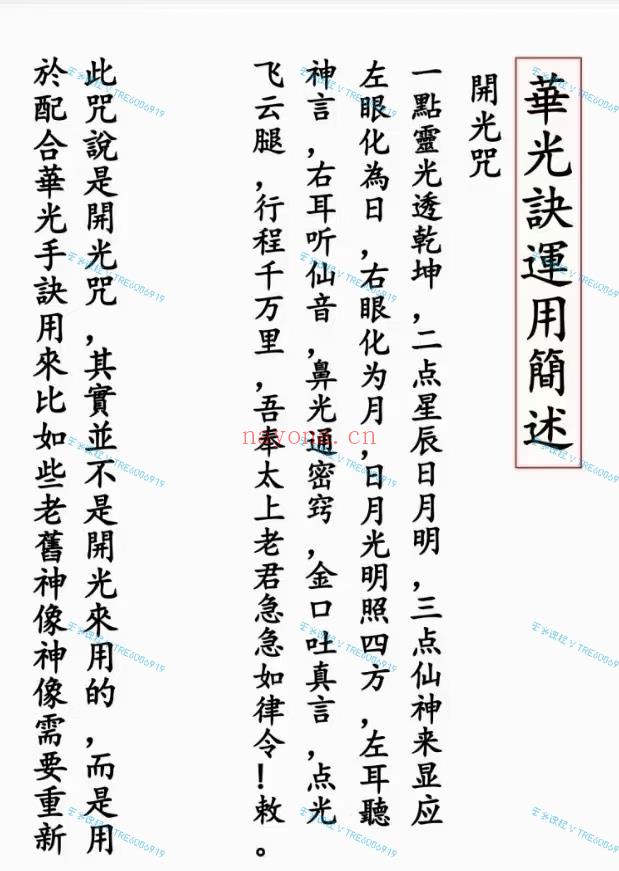 華光訣運用簡述
開光咒
一點靈光透乾坤，二点星辰日月明，三点仙神来显应
左眼化為日，右眼化为月，日月光明照四方，左耳聽
神言，右耳听仙音，鼻光通密窍，金口吐真言，点光
飞云腿，行程千万里，吾奉太上老君急急如律令！敕。
此咒說是開光咒，其實並不是開光來用的，而是用
於配合華光手訣用來比如些老舊神像神像需要重新
nayona.cn